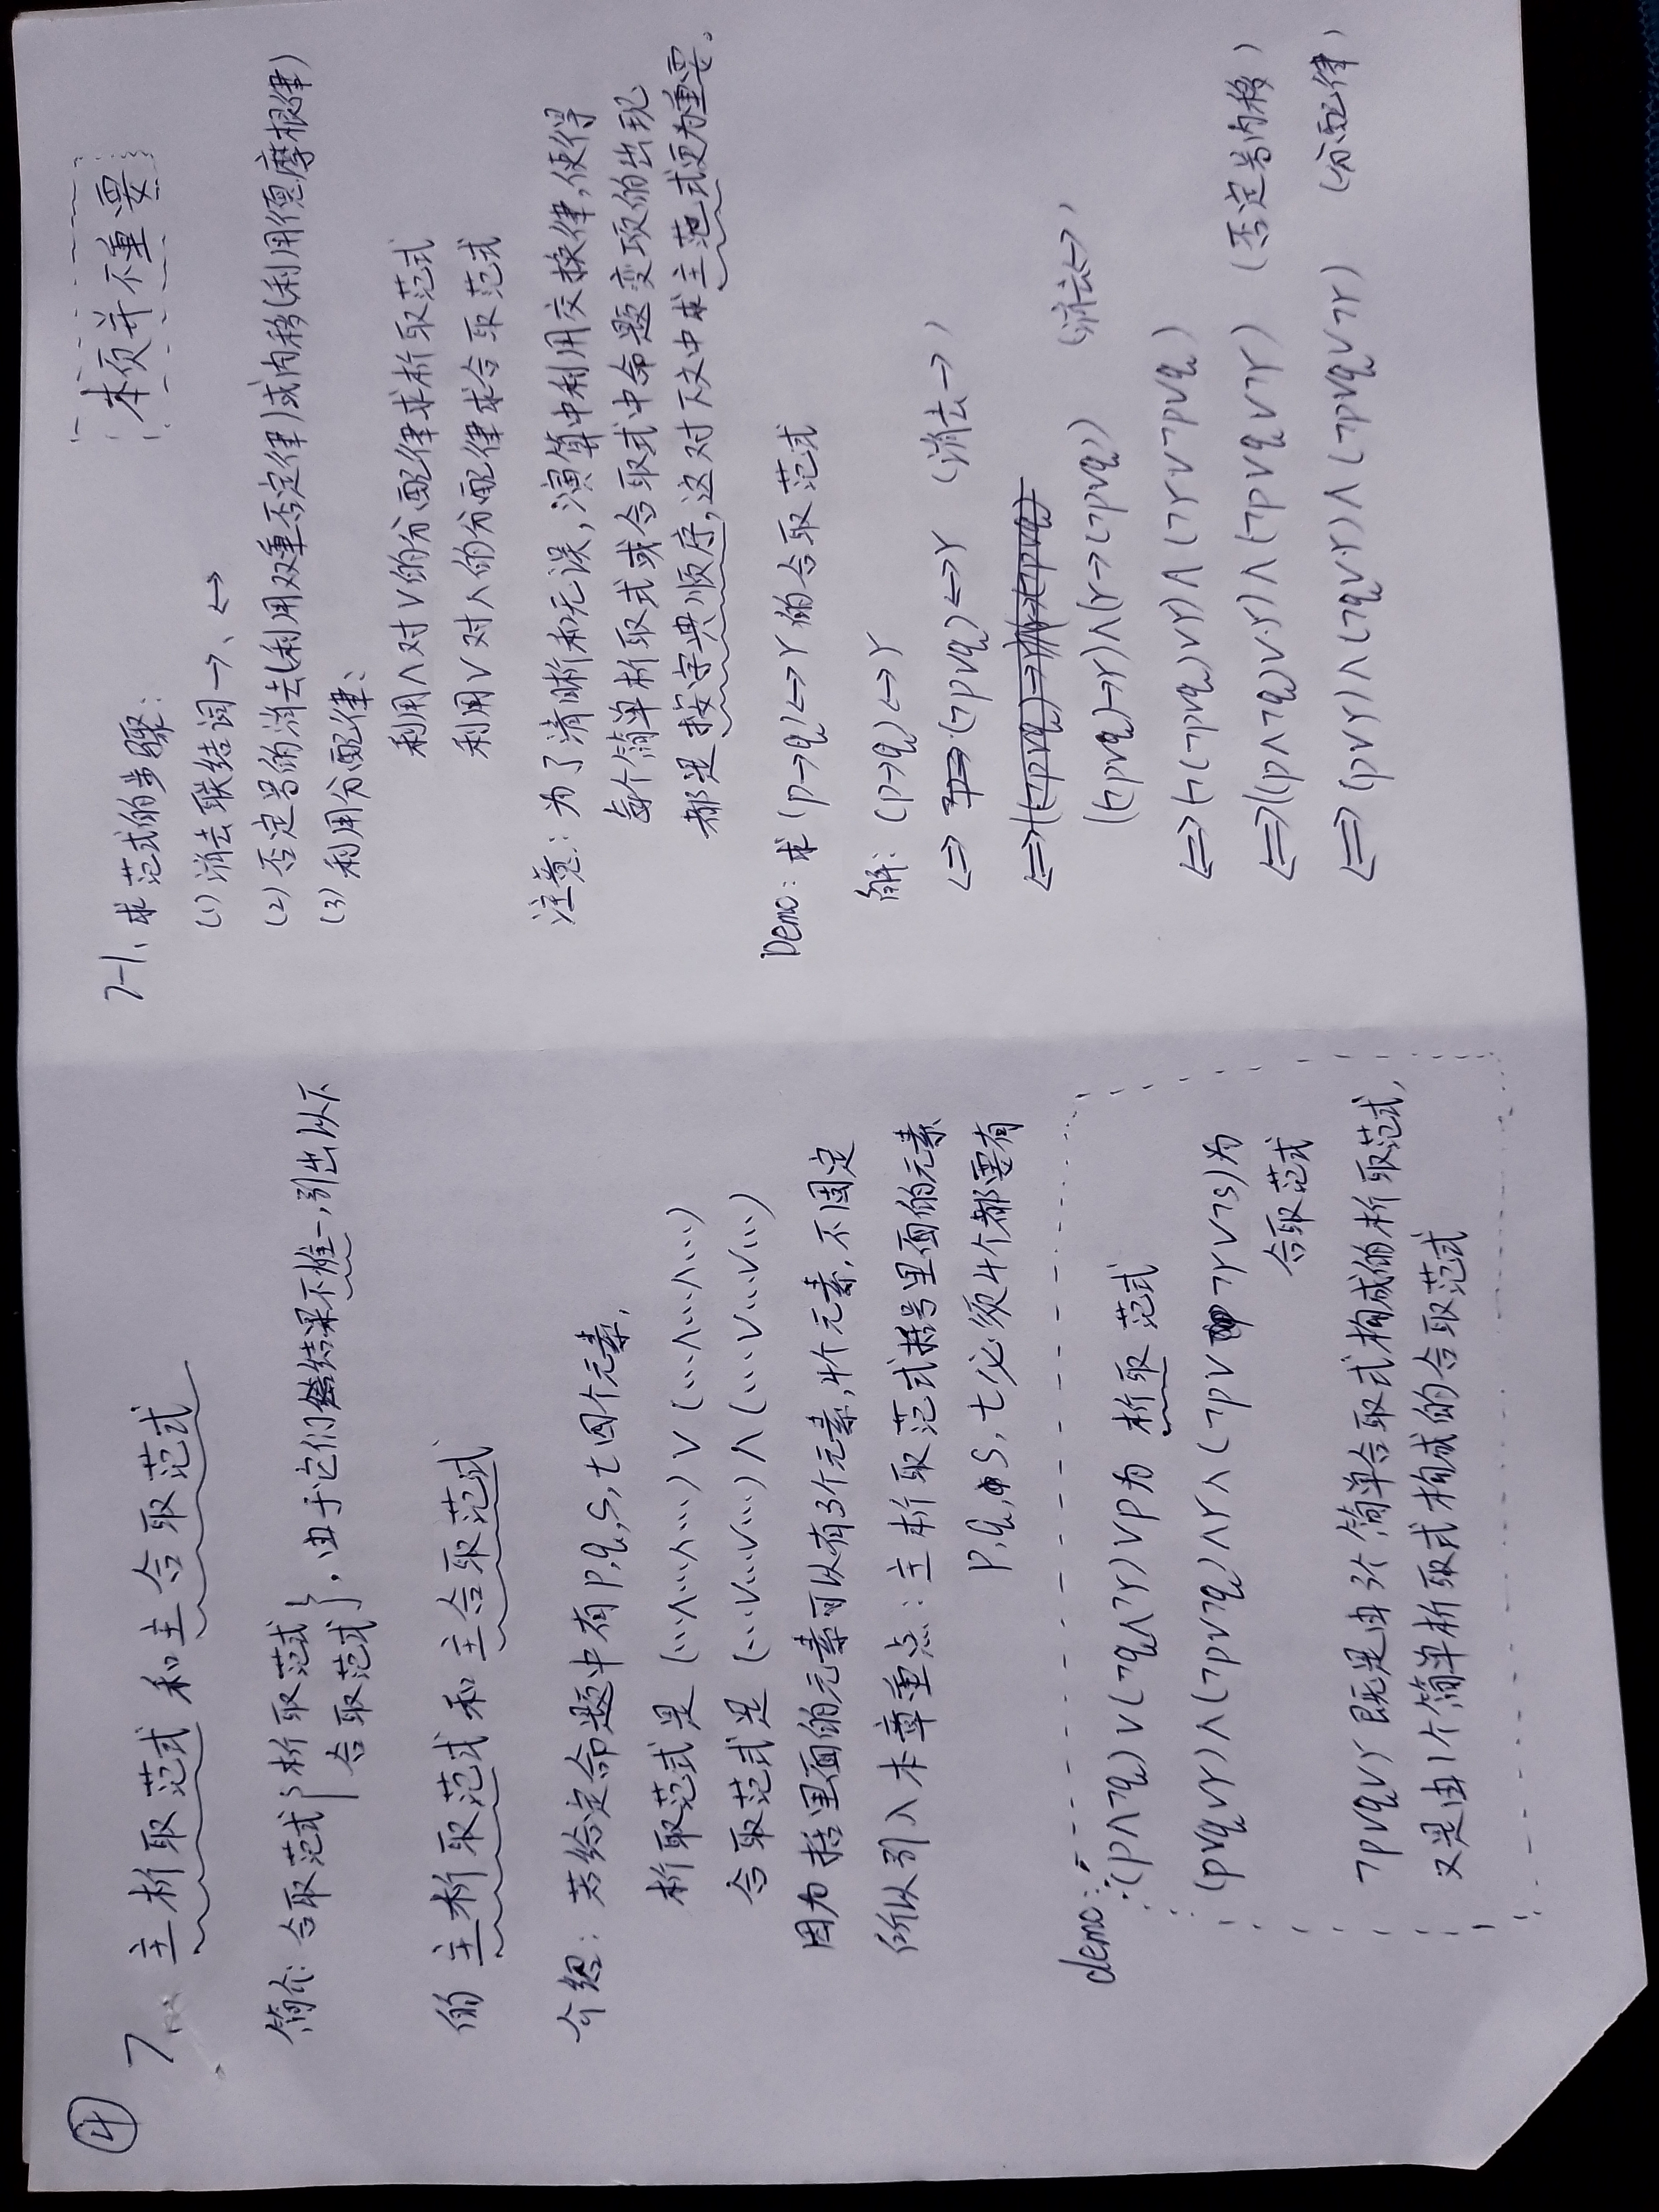 ④
7、主析取范式和主合取范式
简介: 合取范式{析取范式
合取范式}, 由于它们结结果不惟一,引出以下
的 主析取范式和主合取范式
介绍: 若给定命题中有p,q,s,t四个元素,
析取范式是 (…∧…∧…)∨(…∧…∧…)
合取范式是 (…∨…∨…)∧(…∨…∨…)
因为 括里面的元素可以有3个元素,4个元素,不固定
所以引入本章重点: 主析取范式括号里面的元素
p,q,s,t必须4个都要有
demo:
(p∧¬q)∨(¬q∧¬r)∨p为 析取范式
(p∨q∨r)∧(¬p∨¬q)∧r∧(¬p∨¬r∨¬s)为
合取范式
¬p∨q∨r 既是由3个简单合取式构成的析取范式,
又是由1个简单析取式构成的合取范式
本页并不重要
7-1、求范式的步骤:
(1) 消去联结词→、↔
(2) 否定号的消去(利用双重否定律)或内移(利用德摩根律)
(3) 利用分配律:
利用∧对∨的分配律求析取范式
利用∨对∧的分配律求合取范式
注意: 为了清晰和无误,演算中利用交换律,使得
每个简单析取式或合取式中命题变项的出现
都是按字典顺序,这对下文中求主范式更为重要。
Demo: 求(p→q)↔r的合取范式
解: (p→q)↔r
⇔ (¬p∨q)↔r (消去→)
⇔((¬p∨q)→r)∧(r→(¬p∨q)
((¬p∨q)→r)∧(r→(¬p∨q)) (消去↔)
⇔(¬(¬p∨q)∨r)∧(¬r∨¬p∨q)
⇔((p∧¬q)∨r)∧(¬p∨q∨¬r) (否定号内移)
⇔(p∨r)∧(¬q∨r)∧(¬p∨q∨¬r) (分配律)